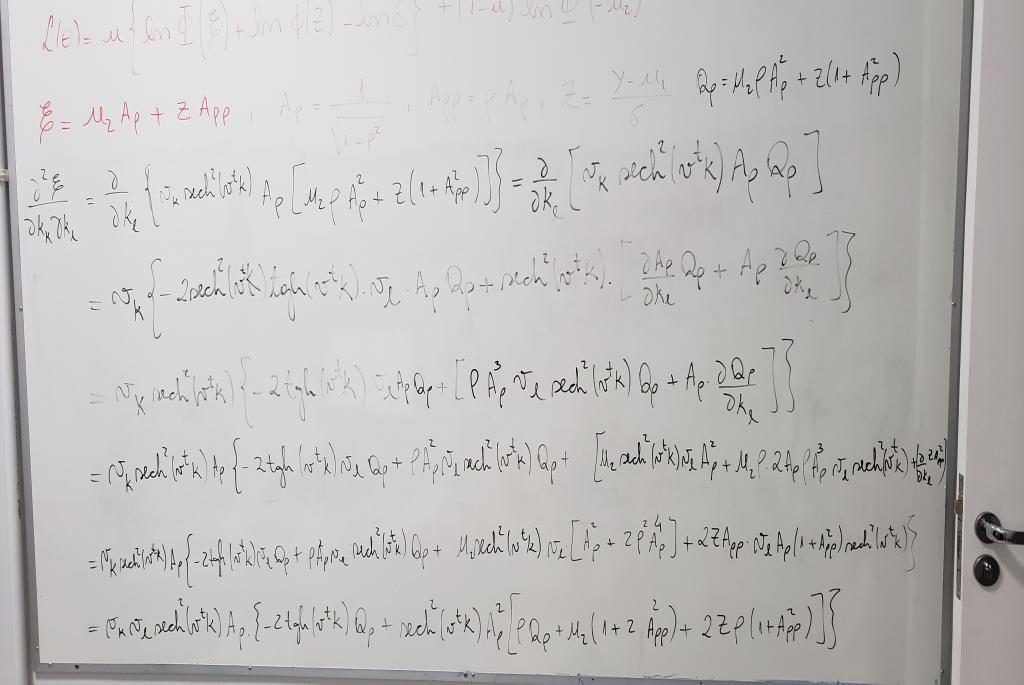 ℒ(θ) = u { ln Φ(ξ) + ln ϕ(z) − ln σ } + (1−u) ln Φ(−μ₂)
ξ = μ₂ Aρ + z Aρρ , Aρ = 1/√(1−ρ²) , Aρρ = ρ Aρ , z = (y − μ₁)/σ   Qρ = μ₂ρA²ρ + z(1 + A²ρρ)
∂²ξ/∂kₖ∂kₗ = ∂/∂kₗ { vₖ sech²(vᵗk) Aρ [ μ₂ρA²ρ + z(1 + A²ρρ) ] } = ∂/∂kₗ [ vₖ sech²(vᵗk) Aρ Qρ ]
= vₖ { −2sech²(vᵗk) tgh(vᵗk)·vₗ·Aρ Qρ + sech²(vᵗk)·[ ∂Aρ/∂kₗ Qρ + Aρ ∂Qρ/∂kₗ ] }
= vₖ sech²(vᵗk) { −2tgh(vᵗk) vₗ Aρ Qρ + [ ρA³ρ vₗ sech²(vᵗk) Qρ + Aρ·∂Qρ/∂kₗ ] }
= vₖ sech²(vᵗk) Aρ { −2tgh(vᵗk) vₗ Qρ + ρA²ρ vₗ sech²(vᵗk) Qρ + [ μ₂ sech²(vᵗk) vₗ A²ρ + μ₂ρ·2Aρ ρA³ρ vₗ sech²(vᵗk) +
= vₖ sech²(vᵗk) Aρ { −2tgh(vᵗk) vₗ Qρ + ρA²ρ vₗ sech²(vᵗk) Qρ + μ₂ sech²(vᵗk) vₗ [ A²ρ + 2ρ²A⁴ρ ] + 2zAρρ·vₗ Aρ(1 + A²ρρ) sech²(vᵗk) }
= vₖ vₗ sech²(vᵗk) Aρ·{ −2tgh(vᵗk) Qρ + sech²(vᵗk) A²ρ [ ρQρ + μ₂(1 + 2A²ρρ) + 2zρ(1 + A²ρρ) ] }